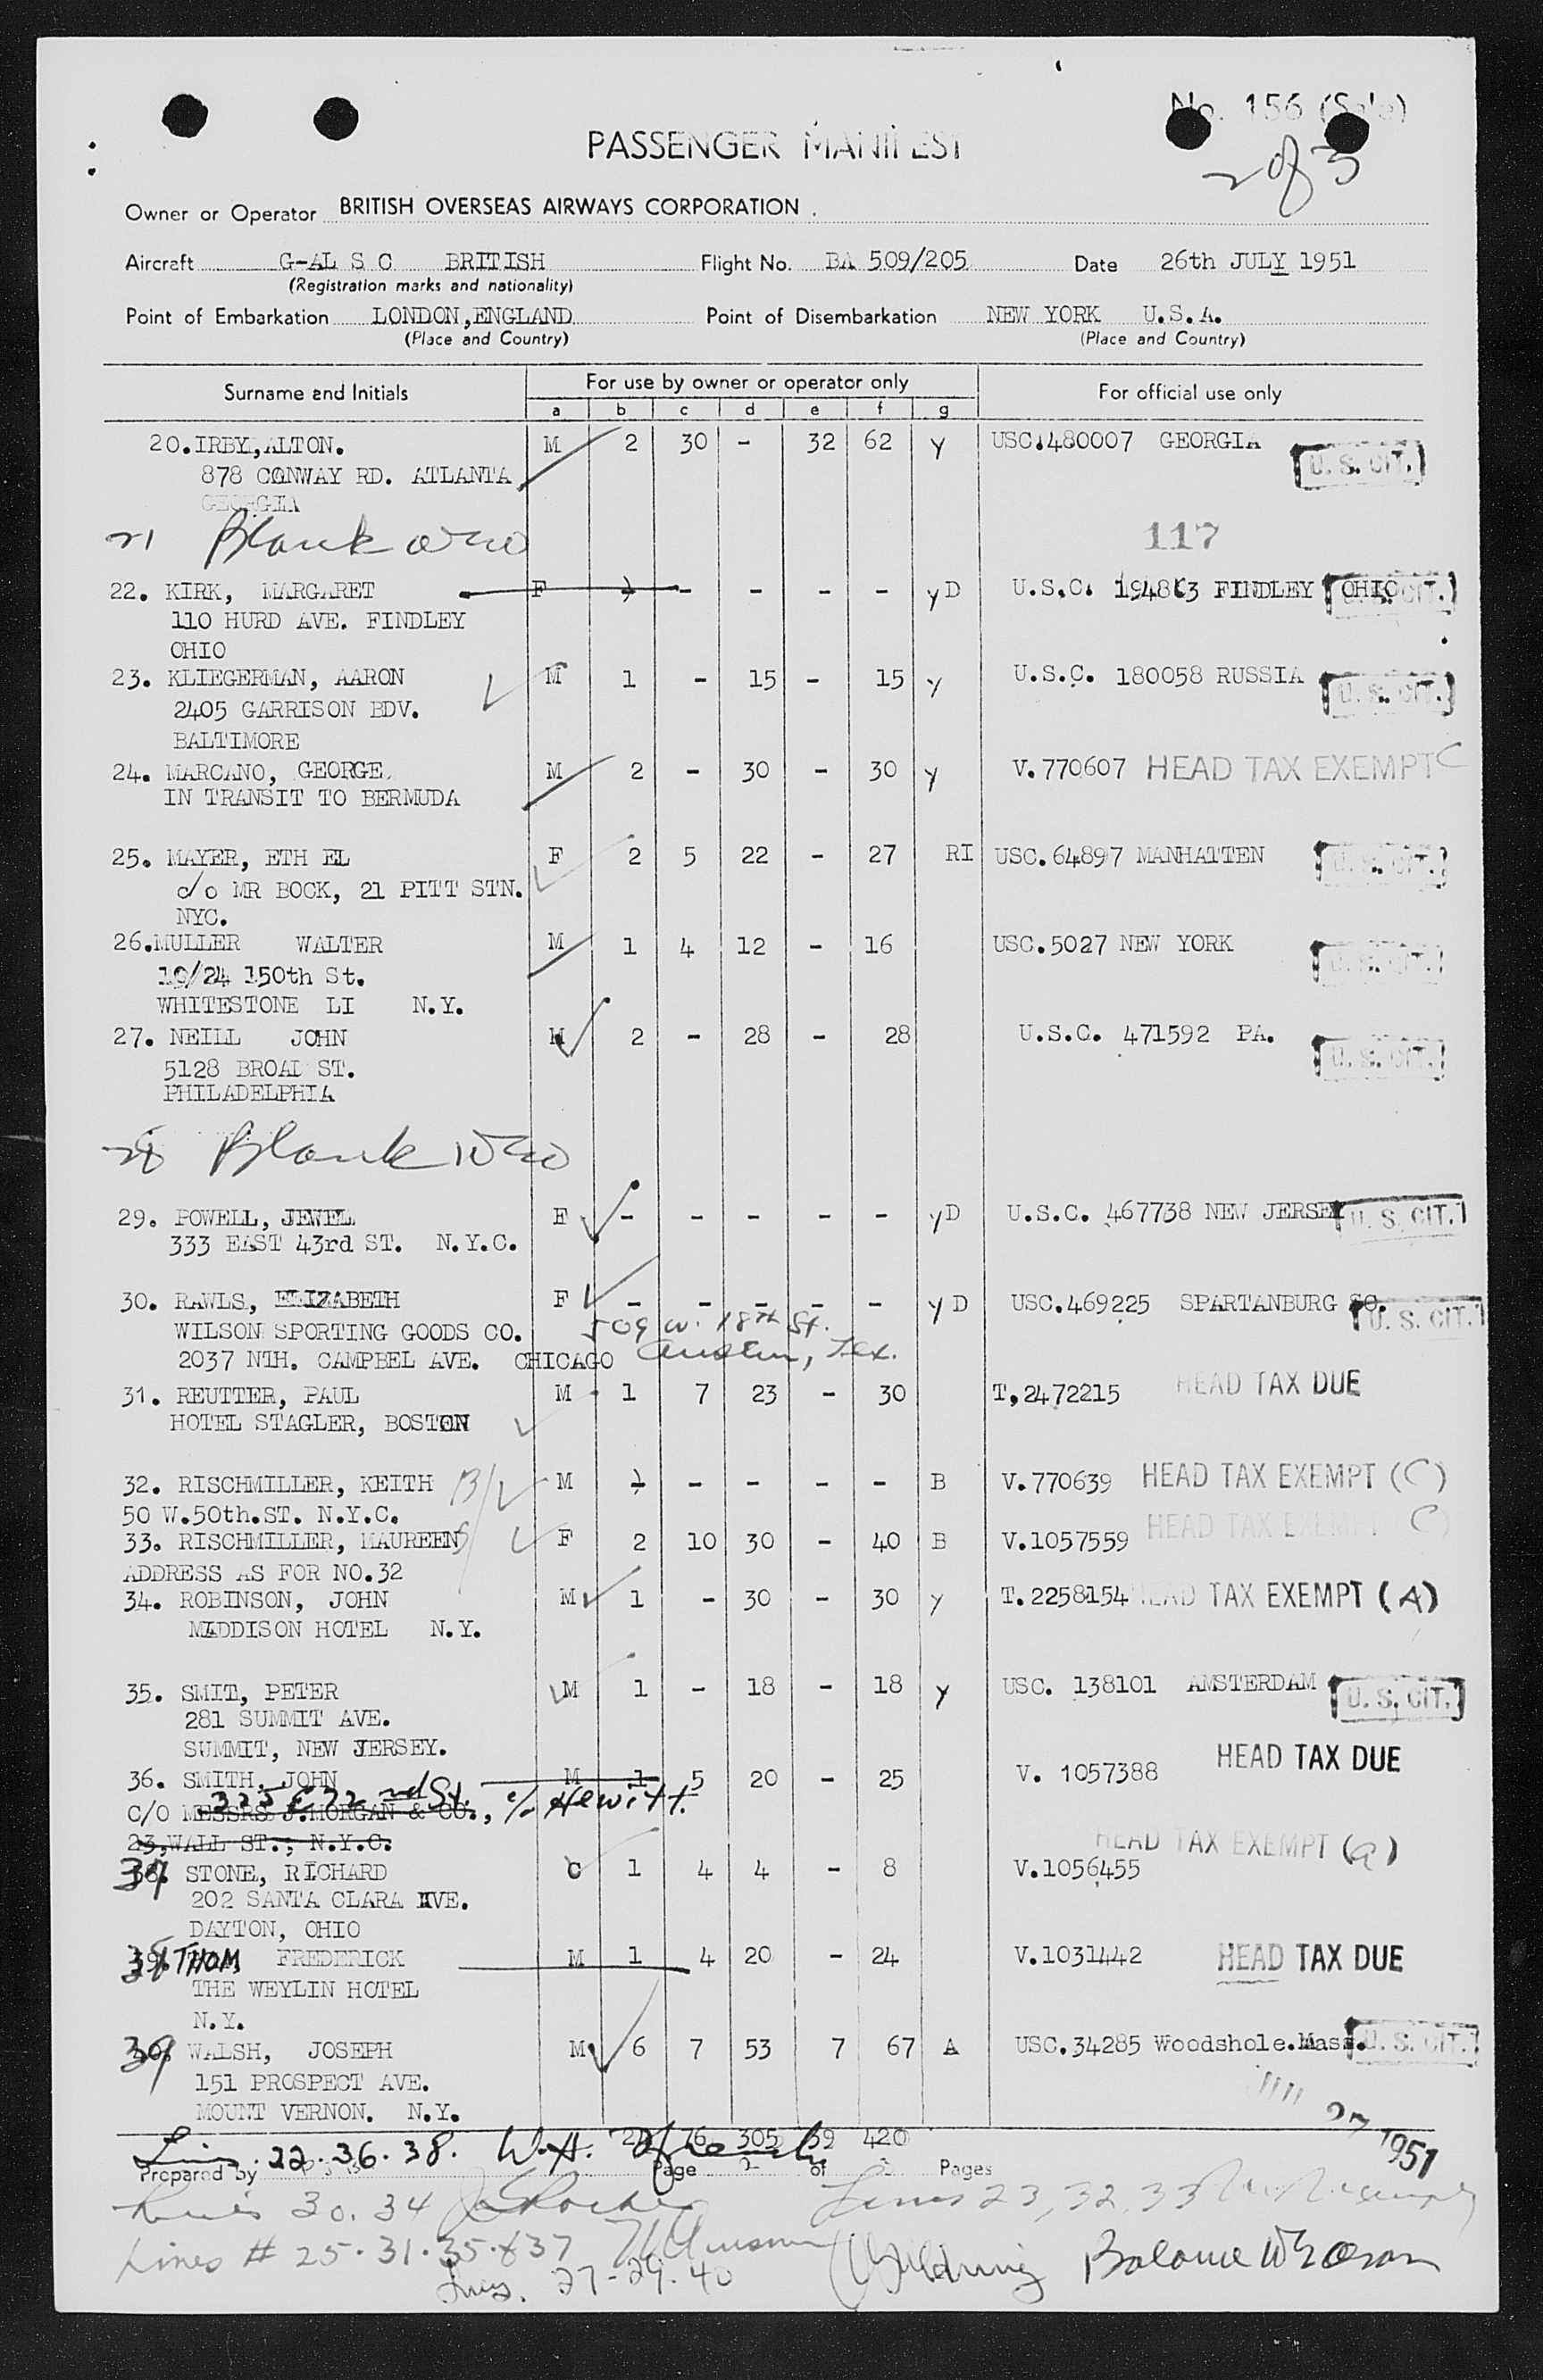 No. 156 (Sale)
2 of 3
PASSENGER MANIFEST
Owner or Operator BRITISH OVERSEAS AIRWAYS CORPORATION .
Aircraft G-AL S C BRITISH Flight No. BA 509/205 Date 26th JULY 1951
(Registration marks and nationality)
Point of Embarkation LONDON,ENGLAND Point of Disembarkation NEW YORK U.S.A.
(Place and Country) (Place and Country)
Surname and Initials For use by owner or operator only For official use only
a b c d e f g
20.IRBY,ALTON. M 2 30 - 32 62 y USC.480007 GEORGIA U. S. CIT.
878 CONWAY RD. ATLANTA
GEORGIA
21 Blank 117
22. KIRK, MARGARET F - - - - - yD U.S.C. 194863 FINDLEY OHIO U. S. CIT.
110 HURD AVE. FINDLEY
OHIO
23. KLIEGERMAN, AARON M 1 - 15 - 15 y U.S.C. 180058 RUSSIA U. S. CIT.
2405 GARRISON BDV.
BALTIMORE
24. MARCANO, GEORGE M 2 - 30 - 30 y V.770607 HEAD TAX EXEMPT C
IN TRANSIT TO BERMUDA
25. MAYER, ETH EL F 2 5 22 - 27 RI USC.64897 MANHATTEN U. S. CIT.
c/o MR BOCK, 21 PITT STN.
NYC.
26.MULLER WALTER M 1 4 12 - 16 USC.5027 NEW YORK U. S. CIT.
10/24 150th St.
WHITESTONE LI N.Y.
27. NEILL JOHN M 2 - 28 - 28 U.S.C. 471592 PA. U. S. CIT.
5128 BROAD ST.
PHILADELPHIA
28 Blank
29. POWELL, JEWEL F - - - - - yD U.S.C. 467738 NEW JERSEY U. S. CIT.
333 EAST 43rd ST. N.Y.C.
30. RAWLS, ELIZABETH F - - - - - yD USC.469225 SPARTANBURG CO. U. S. CIT.
WILSON SPORTING GOODS CO. 509 W. 18th St.
2037 NTH. CAMPBEL AVE. CHICAGO Austin, Tex.
31. REUTTER, PAUL M 1 7 23 - 30 T,2472215 HEAD TAX DUE
HOTEL STAGLER, BOSTON
32. RISCHMILLER, KEITH M - - - - - B V.770639 HEAD TAX EXEMPT (C)
50 W.50th.ST. N.Y.C.
33. RISCHMILLER, MAUREEN F 2 10 30 - 40 B V.1057559 HEAD TAX EXEMPT (C)
ADDRESS AS FOR NO.32
34. ROBINSON, JOHN M 1 - 30 - 30 y T.2258154 HEAD TAX EXEMPT (A)
MADDISON HOTEL N.Y.
35. SMIT, PETER M 1 - 18 - 18 y USC. 138101 AMSTERDAM U. S. CIT.
281 SUMMIT AVE.
SUMMIT, NEW JERSEY.
36. SMITH, JOHN M 1 5 20 - 25 V. 1057388 HEAD TAX DUE
325 E 72 nd St., c/o Hewitt.
C/O MESSRS J.MORGAN & CO.
23,WALL ST., N.Y.C.
37 STONE, RICHARD C 1 4 4 - 8 V.1056455 HEAD TAX EXEMPT (a)
202 SANTA CLARA AVE.
DAYTON, OHIO
38 THOM FREDERICK M 1 4 20 - 24 V.1031442 HEAD TAX DUE
THE WEYLIN HOTEL
N.Y.
39 WALSH, JOSEPH M 6 7 53 7 67 A USC.34285 Woodshole.Mass. U. S. CIT.
151 PROSPECT AVE.
MOUNT VERNON. N.Y.
27 1951
76 305 39 420
22. 36. 38. W.H.
Prepared by Page 2 of Pages
Lines 30. 34 Lines 23, 32, 33
Lines # 25. 31. 35. & 37
Lines. 27-29-40